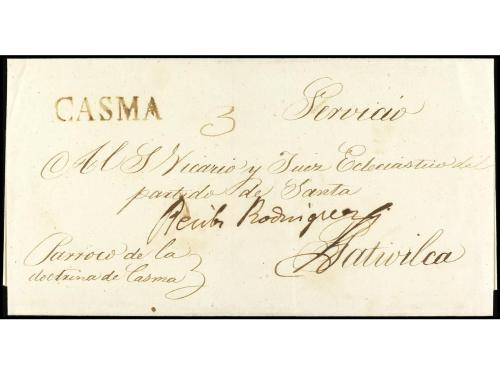 CASMA
3 Servicio
Al S Vicario y Juez Eclesiastico del
partido de Santa
Recibi Rodriguez
Parroco de la
doctrina de Casma
Pativilca